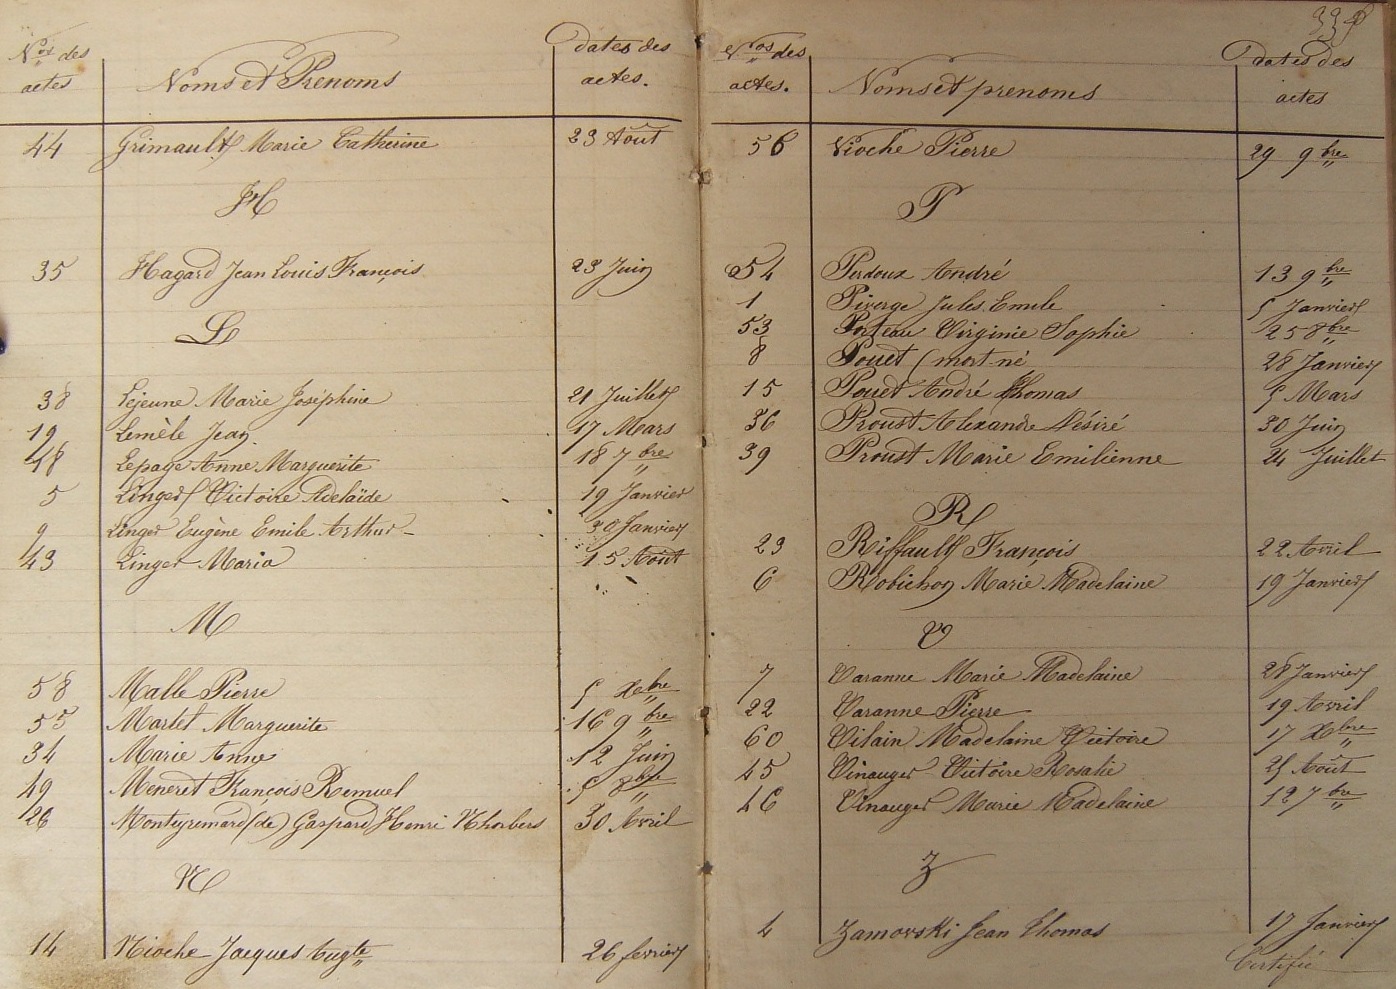 Nos des actes Noms et Prenoms dates des actes.
44 Grimault Marie Catherine 23 Août
H
35 Hagard Jean Louis François 23 Juin
L
38 Lejeune Marie Joséphine 21 Juillet
19 Lemèle Jean 17 Mars
48 Lepage Anne Marguerite 18 7bre
5 Linger Victoire Adelaïde 19 Janvier
9 Linger Eugène Emile Arthur 30 Janvier
43 Linger Maria 15 Août
M
58 Malle Pierre 5 Xbre
55 Martet Marguerite 16 9bre
34 Marie Anne 12 Juin
49 Meneret François Remuel 5 8bre
26 (de) Gaspard Henri 30 Avril
N
14 Nioche Jacques Augte 26 fevrier
339
Nos des actes. Noms et prenoms dates des actes
56 Nioche Pierre 29 9bre
P
54 Perdoux André 13 9bre
1 Piverge Jules Emile 5 Janvier
53 Porteau Virginie Sophie 25 8bre
8 Pouet (mort-né 28 Janvier
15 Pouet André Thomas 5 Mars
36 Proust Alexandre Désiré 30 Juin
39 Proust Marie Emilienne 24 Juillet
R
23 Riffault François 22 Avril
6 Robichon Marie Madelaine 19 Janvier
V
7 Varanne Marie Madelaine 28 Janvier
22 Varanne Pierre 19 Avril
60 Vilain Madelaine Victoire 17 Xbre
45 Vinauger Victoire Rosalie 25 Août
46 Vinauger Marie Madelaine 12 7bre
Z
4 Zamorski Jean Thomas 17 Janvier
Certifié